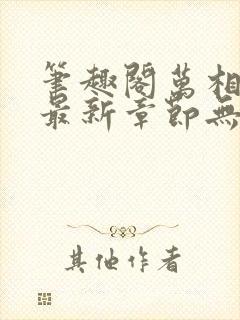 筆趣閣萬相
最新章節無
其他作者